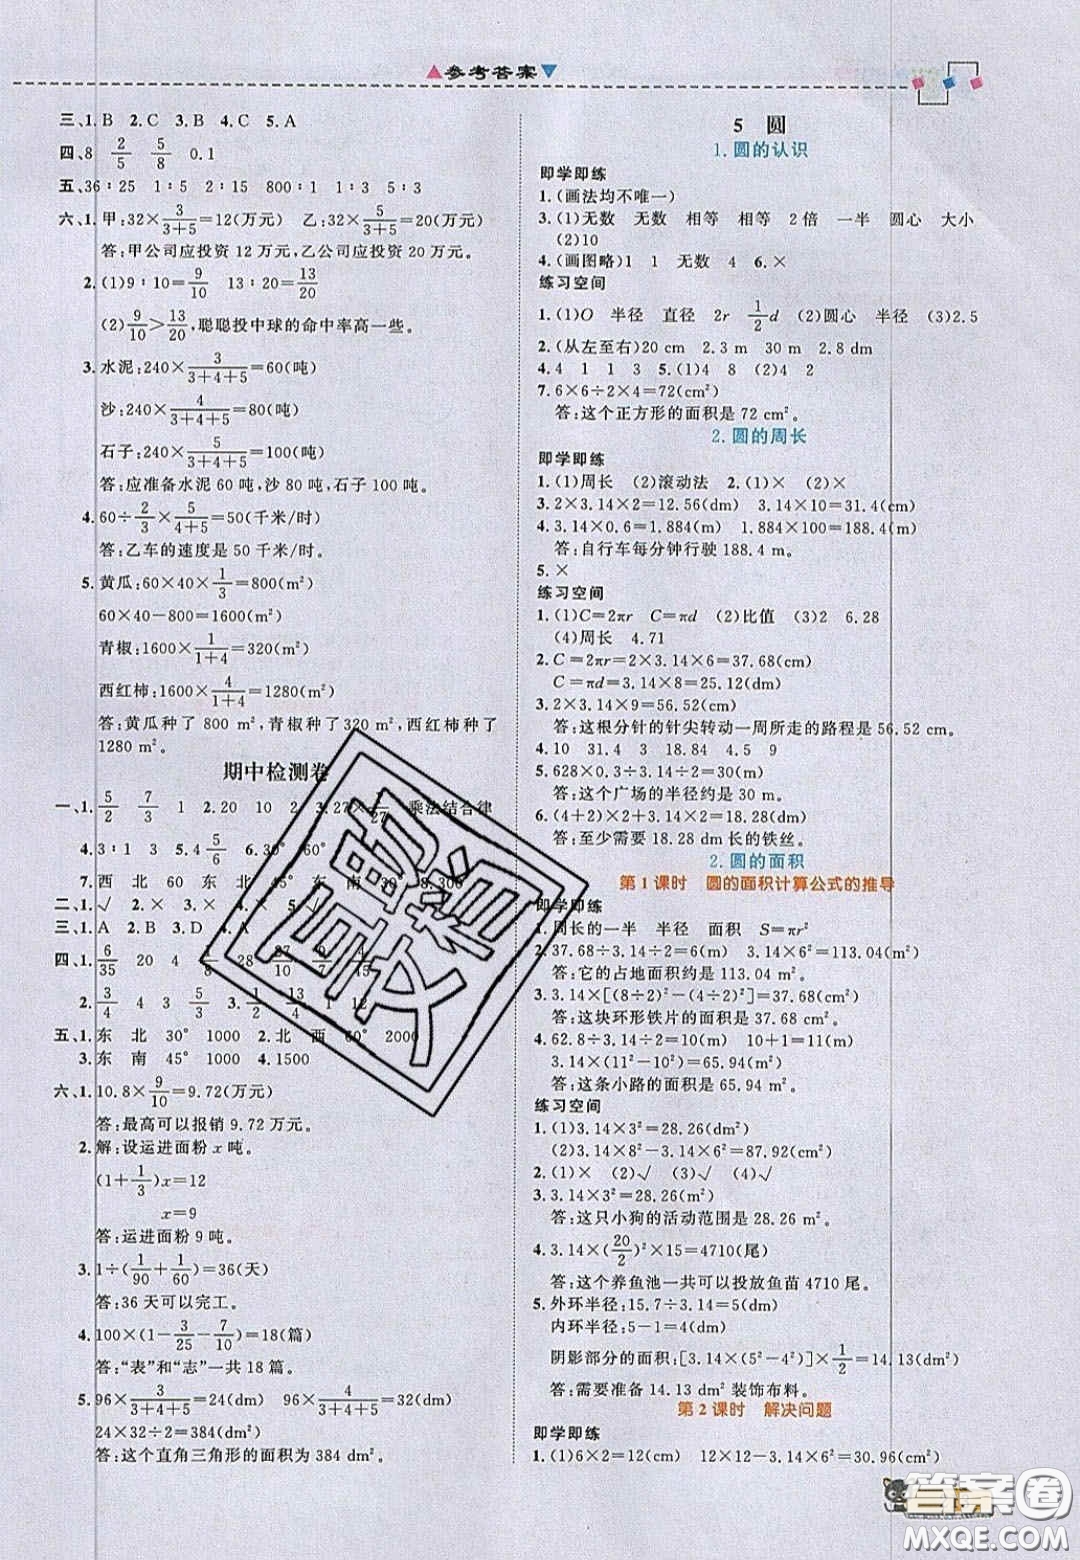 参考答案
三、1.B 2.C 3.B 4.C 5.A
四、8 2/5 5/8 0.1
五、36∶25 1∶5 2∶15 800∶1 1∶3 5∶3
六、1.甲:32×3/(3+5)=12(万元) 乙:32×5/(3+5)=20(万元)
答:甲公司应投资 12 万元,乙公司应投资 20 万元。
2.(1)9∶10=9/10 13∶20=13/20
(2)9/10>13/20,聪聪投中球的命中率高一些。
3.水泥:240×3/(3+4+5)=60(吨)
沙:240×4/(3+4+5)=80(吨)
石子:240×5/(3+4+5)=100(吨)
答:应准备水泥 60 吨,沙 80 吨,石子 100 吨。
4.60÷2/3×5/(4+5)=50(千米/时)
答:乙车的速度是 50 千米/时。
5.黄瓜:60×40×1/3=800(m²)
60×40−800=1600(m²)
青椒:1600×1/(1+4)=320(m²)
西红柿:1600×4/(1+4)=1280(m²)
答:黄瓜种了 800 m²,青椒种了320 m²,西红柿种了
1280 m²。
期中检测卷
一、1.5/2 7/3 1 2.20 10 2 乘法结合律
4.3∶1 3 5.4 5/6 6.30° 60°
7.西 北 60 东 北 45° 东 8.300
二、1.√ 2.× 3.× 4.× 5.√
三、1.A 2.B 3.D 4.A
四、1.6/35 20 4
2.3/4 4 3 5/3 3.
五、1.东 北 30° 1000 2.北 西 60° 2000
3.东 南 45° 1000 4.1500
六、1.10.8×9/10=9.72(万元)
答:最高可以报销 9.72 万元。
2.解:设运进面粉 x 吨。
(1+1/3)x=12
x=9
答:运进面粉 9 吨。
3.1÷(1/90+1/60)=36(天)
答:36 天可以完工。
4.100×(1−3/25−7/10)=18(篇)
答:“表”和“志”一共 18 篇。
5.96×3/(3+4+5)=24(dm) 96×4/(3+4+5)=32(dm)
24×32÷2=384(dm²)
答:这个直角三角形的面积为 384 dm²。
5 圆
1.圆的认识
即学即练
1.(画法均不唯一)
3.(1)无数 无数 相等 相等 2倍 一半 圆心 大小
(2)10
4.(画图略)1 1 无数 4 6.×
练习空间
1.(1)O 半径 直径 2r 1/2d (2)圆心 半径 (3)2.5
2.(从左至右)20 cm 2.3 m 30 m 2.8 dm
4.4 1 1 3 5.(1)4 8 (2)4 2
7.6×6÷2×4=72(cm²)
答:这个正方形的面积是 72 cm²。
2.圆的周长
即学即练
1.(1)周长 (2)滚动法 2.(1)× (2)×
3.2×3.14×2=12.56(dm) 3.14×10=31.4(cm)
4.3.14×0.6=1.884(m) 1.884×100=188.4(m)
答:自行车每分钟行驶 188.4 m。
5.×
练习空间
1.(1)C=2πr C=πd (2)比值 (3)2 6.28
(4)周长 4.71
2.C=2πr=2×3.14×6=37.68(cm)
C=πd=3.14×5=15.7(cm)
3.2×3.14×9=56.52(cm)
答:这根分针的针尖转动一周所走的路程是 56.52 cm。
4.10 31.4 3 18.84 4.5 9
5.628×0.3÷3.14÷2=30(m)
答:这个广场的半径约是 30 m。
6.(4+2)×2+3.14×2=18.28(dm)
答:至少需要 18.28 dm 长的铁丝。
2.圆的面积
第 1 课时 圆的面积计算公式的推导
即学即练
1.周长的一半 半径 面积 S=πr²
2.37.68÷3.14÷2=6(m) 3.14×6²=113.04(m²)
答:它的占地面积约是 113.04 m²。
3.3.14×[(8÷2)²−(4÷2)²]=37.68(cm²)
答:这块环形铁片的面积是 37.68 cm²。
4.62.8÷3.14÷2=10(m) 10+1=11(m)
3.14×(11²−10²)=65.94(m²)
答:这条小路的面积是 65.94 m²。
练习空间
1.(1)3.14×3²=28.26(dm²)
(2)3.14×8²−3.14×6²=87.92(cm²)
2.(1)× (2)√ (3)√ (4)√
3.3.14×3²=28.26(m²)
答:这只小狗的活动范围是 28.26 m²。
4.3.14×(20/2)²×15=4710(尾)
答:这个养鱼池一共可以投放鱼苗 4710 尾。
5.外环半径:15.7÷3.14=5(dm)
内环半径:5−1=4(dm)
阴影部分的面积:[3.14×(5²−4²)]×1/2=14.13(dm²)
答:需要准备 14.13 dm² 装饰布料。
第 2 课时 解决问题
即学即练
1.(1)6×2=12(cm) 12×12−3.14×6²=30.96(cm²)
答案圈
MXQE.COM